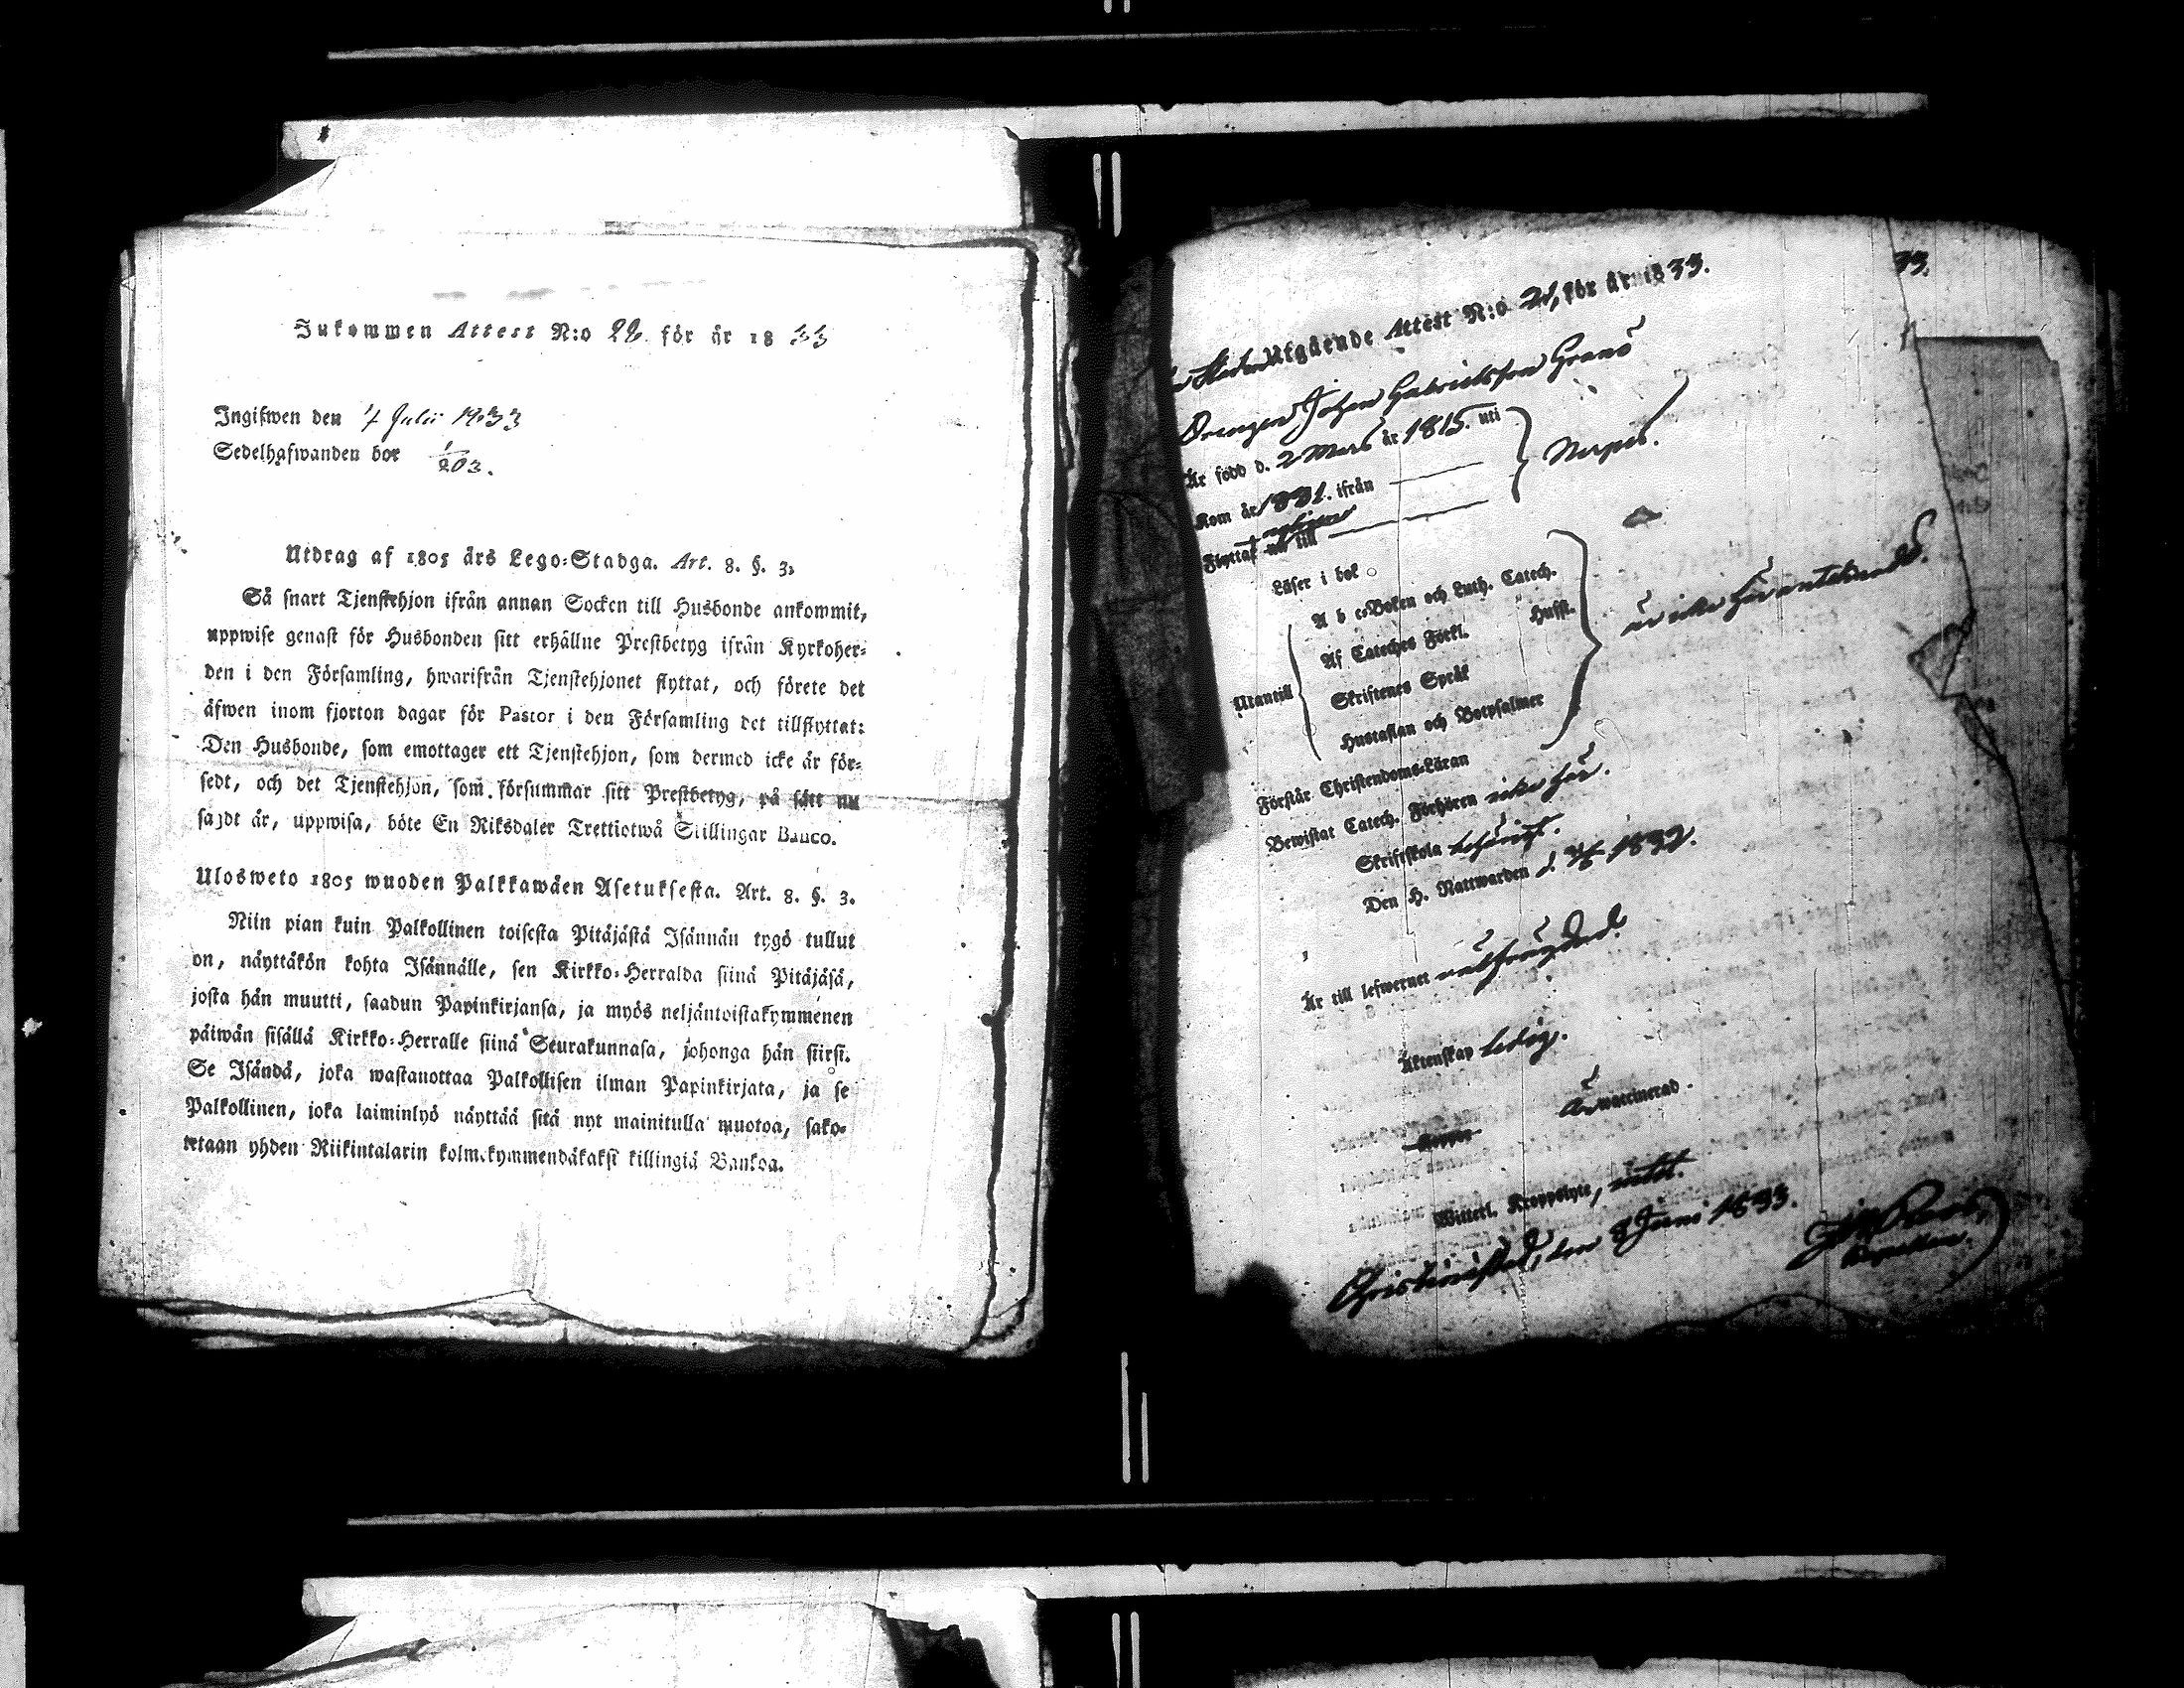 Inkommen Attest N:o 22. för år 1833
Ingifwen den 7 Julii 1833
Sedelhafwanden bor 1/203.
Utdrag af 1805 års Lego-Stadga. Art. 8. §. 3.
Så snart Tjenstehjon ifrån annan Socken till Husbonde ankommit,
uppwise genast för Husbonden sitt erhållne Prestbetyg ifrån Kyrkoher-
den i den Församling, hwarifrån Tjenstehjonet flyttat, och förete det
äfwen inom fjorton dagar för Pastor i den Församling det tillflyttat:
Den Husbonde, som emottager ett Tjenstehjon, som dermed icke är för-
sedt, och det Tjenstehjon, som försummar sitt Prestbetyg, på sätt nu
sagdt är, uppwisa, böte En Riksdaler Trettiotwå Skillingar Banco.
Ulosweto 1805 wuoden Palkkawäen Asetuksesta. Art. 8. §. 3.
Niin pian kuin Palkollinen toisesta Pitäjästä Isännän tygö tullut
on, näyttäkön kohta Isännälle, sen Kirkko-Herralda siinä Pitäjäsä,
josta hän muutti, saadun Papinkirjansa, ja myös neljäntoistakymmenen
päiwän sisällä Kirkko-Herralle siinä Seurakunnasa, johonga hän siirsi.
Se Isändä, joka wastanottaa Palkollisen ilman Papinkirjata, ja se
Palkollinen, joka laiminlyö näyttää sitä nyt mainitulla muotoa, sako-
tetaan yhden Riikintalarin kolmekymmendäkaksi killingiä Bankoa.
33.
Utgående Attest N:o 21, för år 1833.
Drengen Johan Gabrielsson Granö
Är född d. 2 Mars år 1815. uti
Kom år 1831. ifrån
Nerpes.
Flyttar nu till
Läser i bok
A b c-Boken och Luth. Catech.
Af Cateches Förkl. Hufst.
är icke här antecknadt.
Utantill
Skriftenes Språk
Hustaflan och Botpsalmer
Förstår Christendoms-Läran
Bewistat Catech. Förhören icke här.
Skriftskola behörigt.
Den H. Nattwarden d. 1832.
Är till lefwernet välfrägdad.
Äktenskap ledig.
Är waccinerad.
Koppor
Witterl. Kroppslyte,
Christinestad, den 8 Juni 1833.